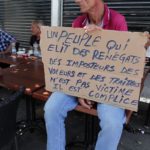 UN PEUPLE QUI
ELIT DES RENEGATS
DES IMPOSTEURS DES
VOLEURS ET LES TRAITRES
N'EST PAS VICTIME
IL EST COMPLICE